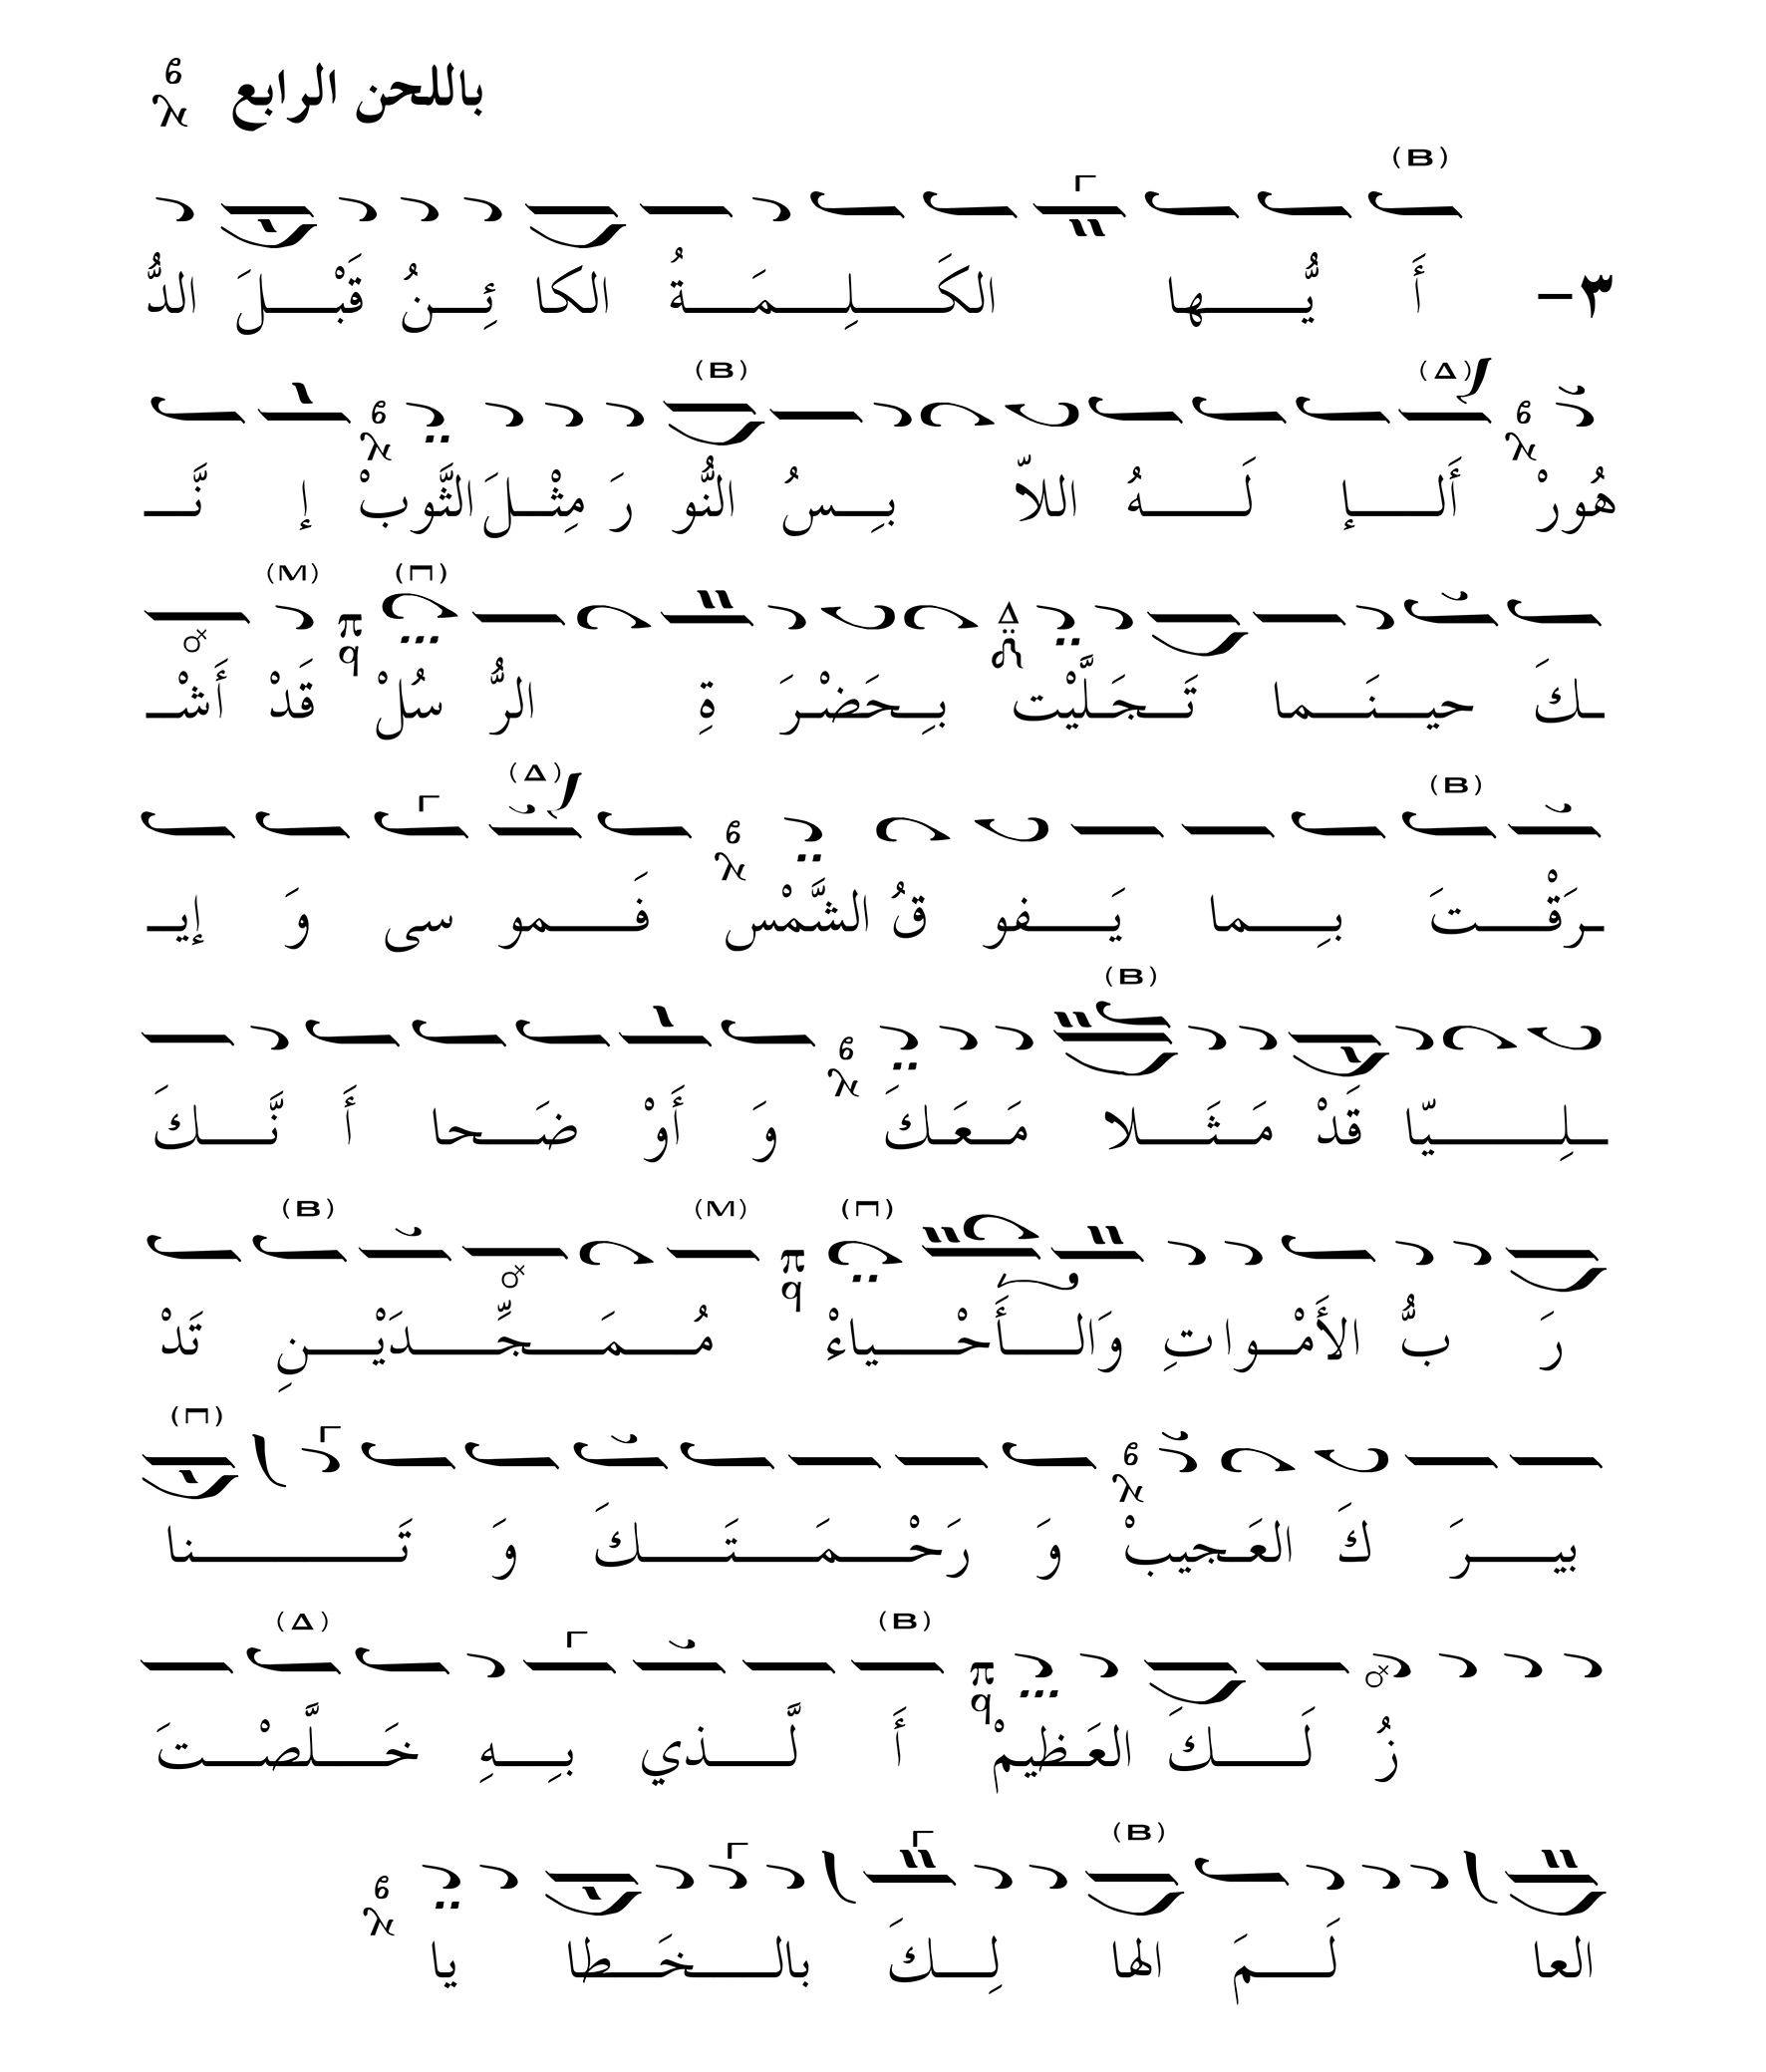 باللحن الرابع
٣- أَ يُّـــها الكَـــلِـــمَـــةُ الكا ئِـــنُ قَبْـــلَ الدُّ
هُورْ أَلـــإ لَـــهُ اللاّ بِـــسُ النُّو رَ مِثْـــلَ الثَّوبْ إ نَّـــ
ـكَ حيـــنَـــما تَـــجَـــلَّيْت بِـــحَضْـــرَ ةِ الرُّ سُلْ قَدْ أَشْـــ
ـرَقْـــتَ بِـــما يَـــفو قُ الشَّمْس فَـــمو سى وَ إيـــ
ـلِـــيّا قَدْ مَـــثَـــلا مَـــعَـــكَ وَ أَوْ ضَـــحا أَ نَّـــكَ
رَ بُّ الأَمْـــواتِ وَالـــأَحْـــياءْ مُـــمَـــجِّـــدَيْـــنِ تَدْ
بيـــرَ كَ العَـــجيبْ وَ رَحْـــمَـــتَـــكَ وَ تَـــنا
زُ لَـــكَ العَـــظيمْ أَ لَّـــذي بِـــهِ خَـــلَّصْـــتَ
العا لَـــمَ الها لِـــكَ بالـــخَـــطا يا